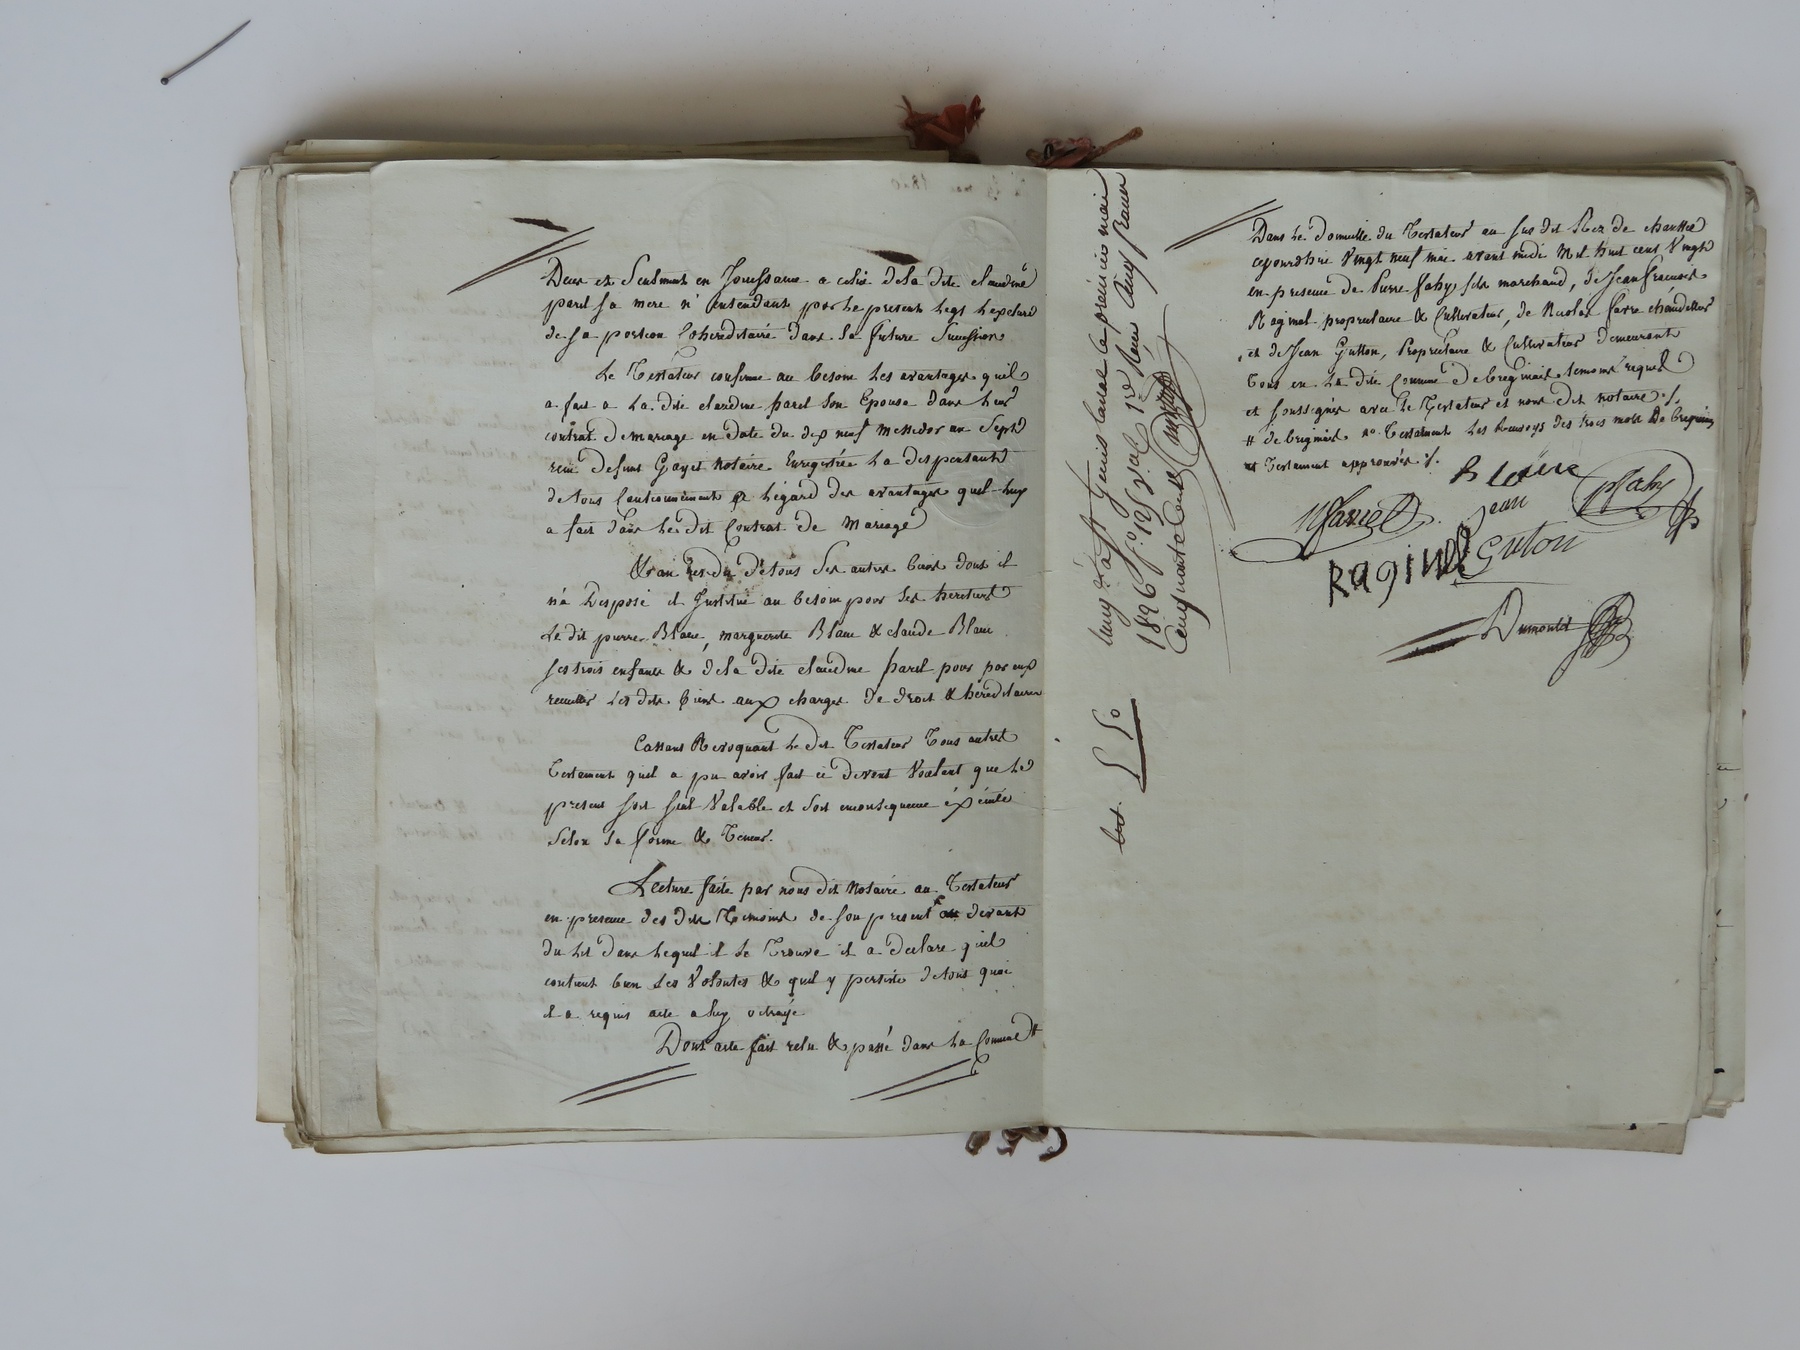 Deux et seulment en Jouissance a celui de la dite claudine
parel sa mere n'entendant par le present legs l'exclure
de sa portion Cohereditaire dans sa future Succession
Le Testateur confirme au besoin les avantages quil
a fait a La dite claudine parel Son Epouse dans leur
contrat de mariage en date du dix neuf Messidor an Sept
recu defunt Gayet notaire Enregistrée La dispensant
de tous Cautionnement a l'egard des avantages quil luy
a fait dans le dit Contrat de Mariage
& au residu de tous ses autres biens dont il
n'a disposé il Institue au besoin pour ses heritiers
Le dit pierre Blanc, marguerite Blanc & claude Blanc
ses trois enfants & de la dite claudine parel pour par eux
recueillir les dits biens aux charges de droit & hereditaires
Cassant Revoquant le dit Testateur Tous autres
Testament quil a pu avoir fait ci devant Voulant que le
present soit seul Valable et soit en consequence éxécuté
Selon sa forme & Teneur.
Lecture faite par nous dit Notaire au Testateur
en presence des dits Temoins de son present au devant
du lit dans lequel il se Trouve il a declaré quil
contient bien ses Volontés & quil y persiste de tout quoi
il a requis acte a luy octroyé
Dont acte fait relu & passé dans la Commune #
Dans le domicille du Testateur au sus dit Rez de chaussée
cejourdhui Vingt neuf mai avant midi Mil huit cent Vingt
en presence de Pierre fahy fils marchand, de Jean francois
Raginel proprietaire & Cultivateur, de Nicolas farre chandellier
et de Jean Gutton, Proprietaire & Cultivateur demeurant
Tous en La dite Commune de brignais temoins requis
et soussignés avec le Testateur et nous dit notaire ./.
# de brignais no. Testament les Renvoys des trois mots de brignais
et Testament approuvés ./.
Blanc
Pfahy
Nfarre
Jean
Gutton
RAGINEL
Dumoulin
Enreg.tré à St Genis Laval le premier mai
1826 f.o 125 V. cal 1re Recu Cinq francs
Cinquante Centes
5 50